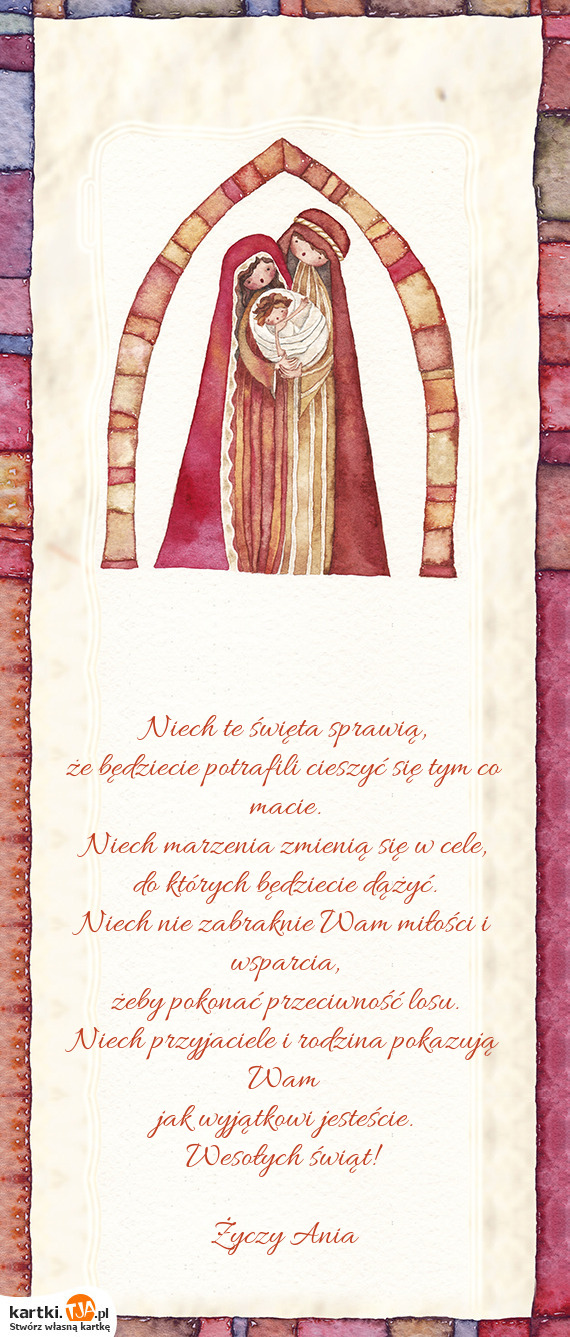 Niech te święta sprawią,
że będziecie potrafili cieszyć się tym co
macie.
Niech marzenia zmienią się w cele,
do których będziecie dążyć.
Niech nie zabraknie Wam miłości i
wsparcia,
żeby pokonać przeciwność losu.
Niech przyjaciele i rodzina pokazują
Wam
jak wyjątkowi jesteście.
Wesołych świąt!
Życzy Ania
kartki.TJA.pl
Stwórz własną kartkę